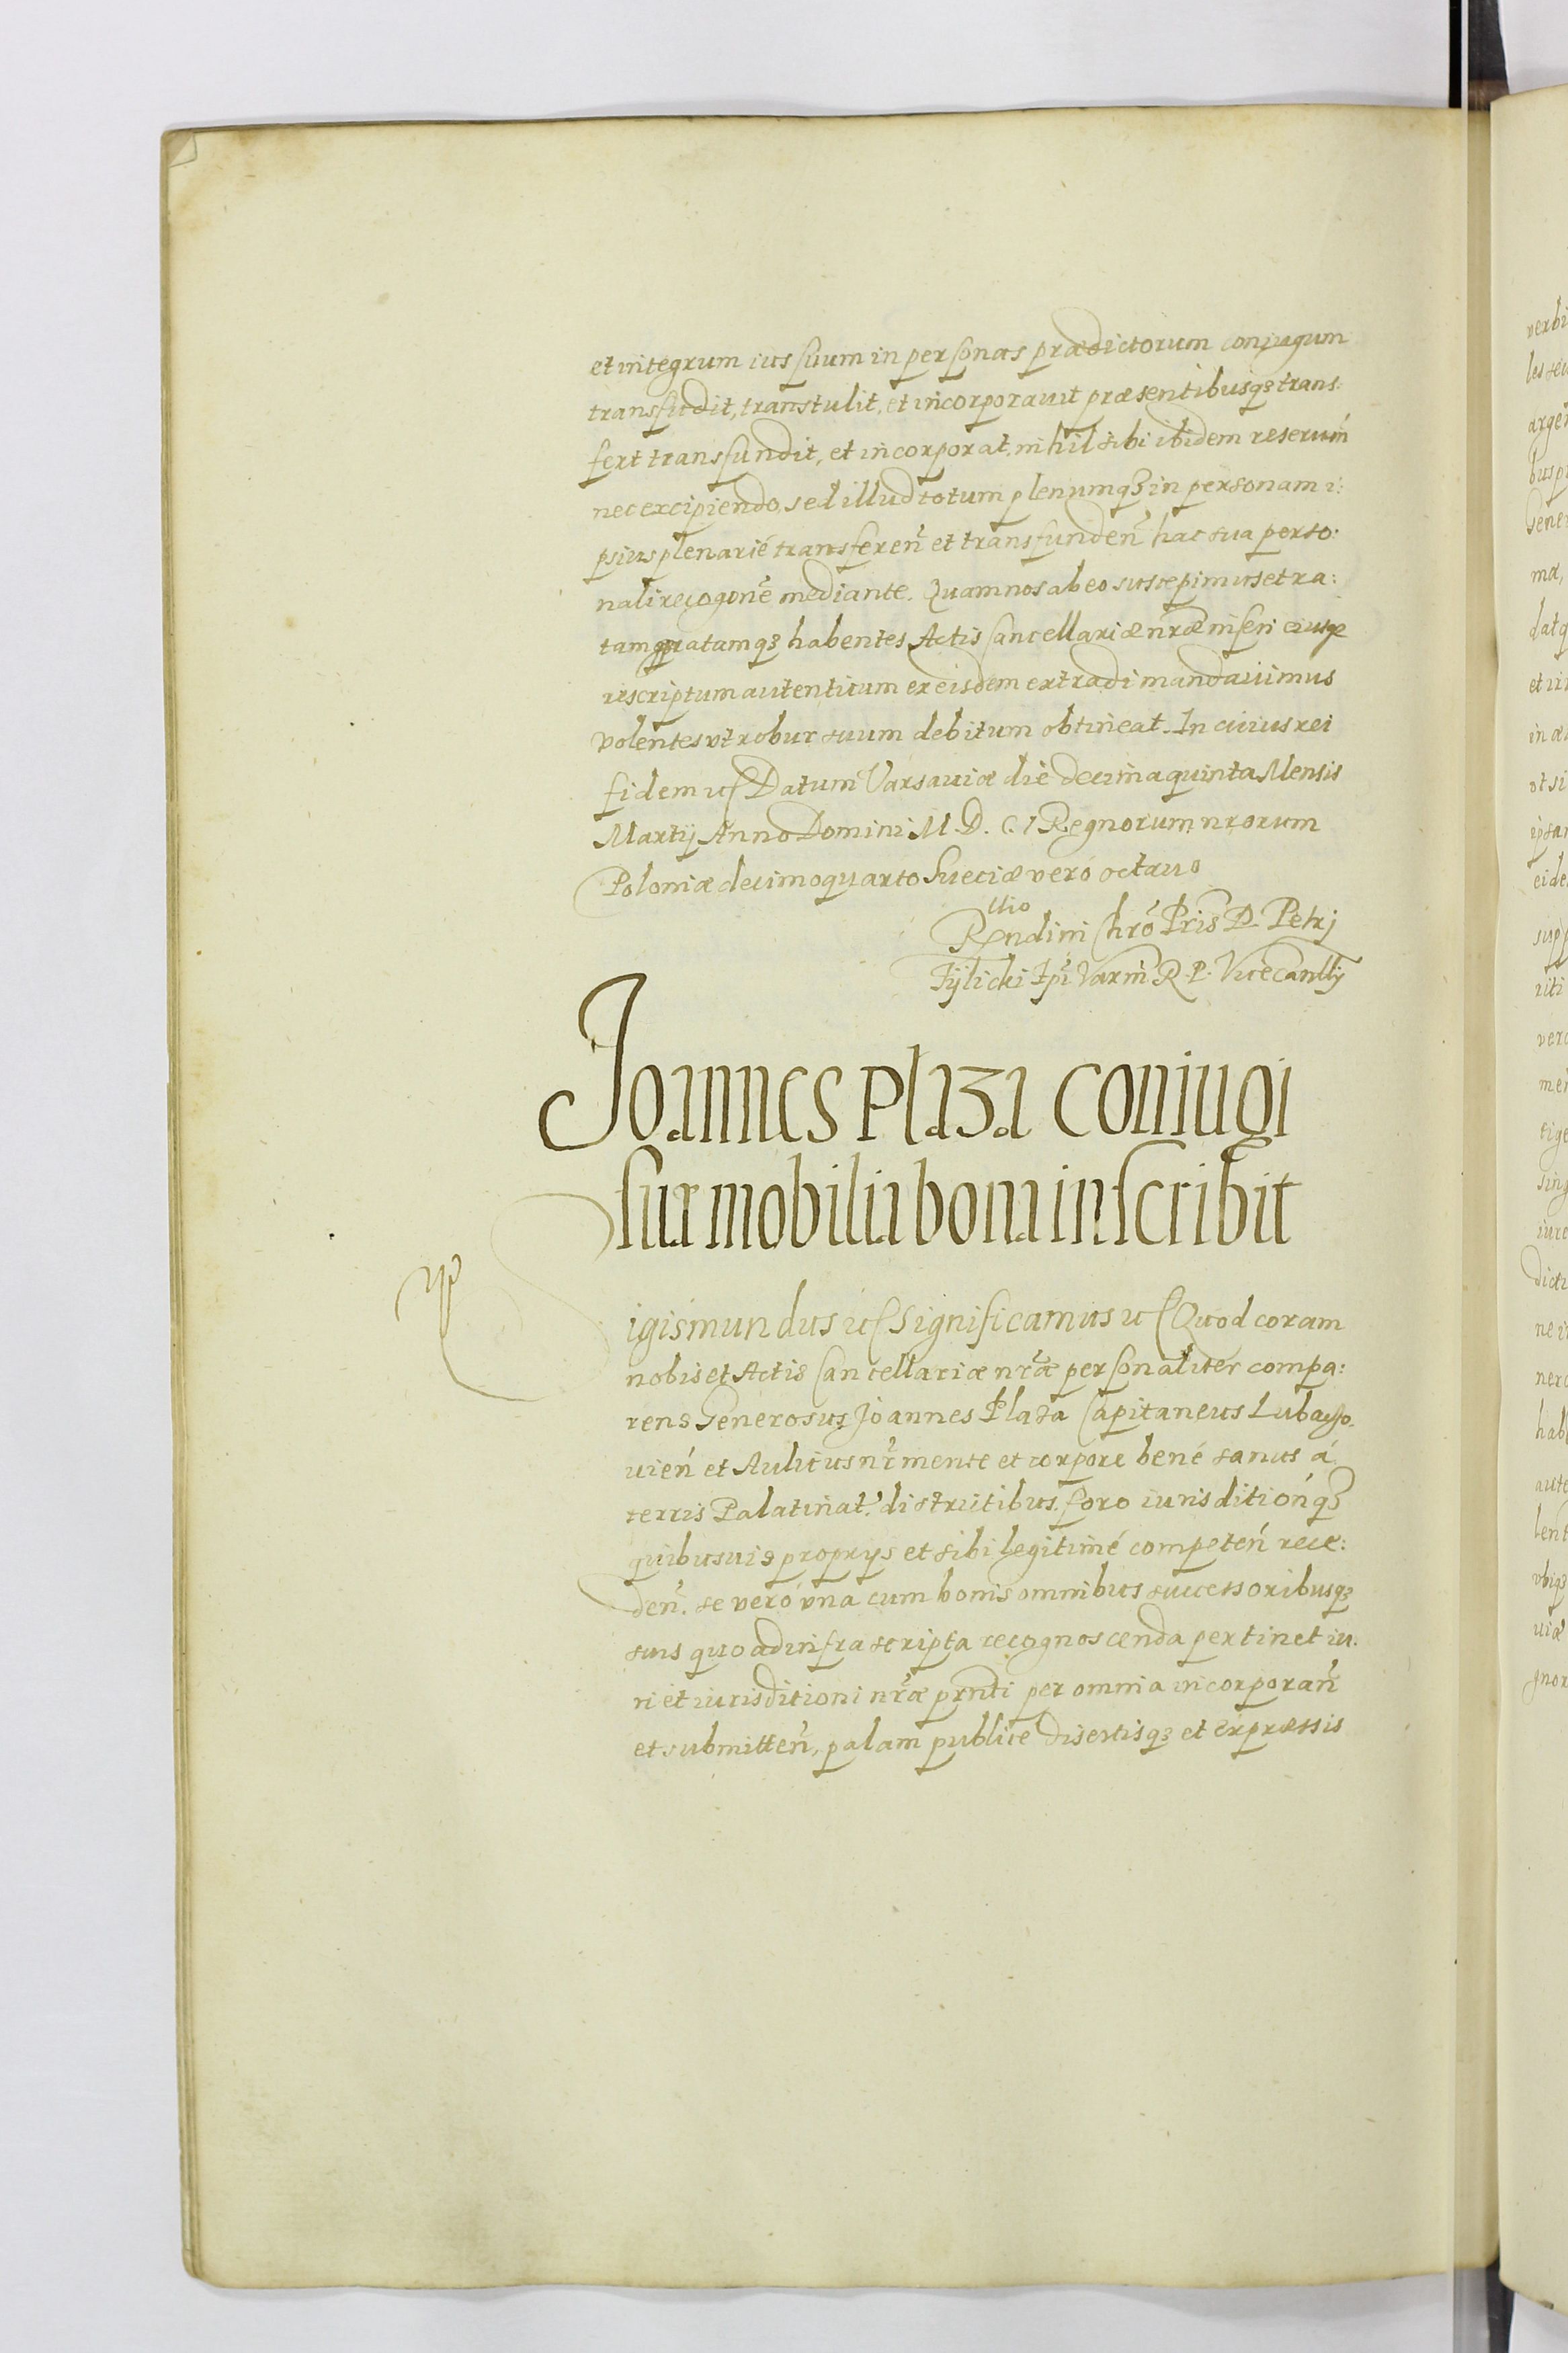 et integrum ius suum in personas prædictorum coniugum
transfudit, transtulit, et incorporauit præsentibusq3 trans:
fert transfundit, et incorporat, nihil sibi ibidem reseruń
nec excipiendo, sed illud totum plenumq3 in personam i:
psius plenarié transfereñ et transfundeñ hac sua perso:
nali recogone mediante. Quam nos ab eo suscepimus et ra:
tam gratamq3 habentes Actis Cancellariæ nræ inseri eiusq3
rescriptum autenticum ex eisdem extradi mandauimus
volentes vt robur suum debitum obtineat. In cuius rei
fidem ɾc Datum Varsauiæ die decima quinta Mensis
Martij Anno Domini M. D. C. I Regnorum nrorum
Poloniæ decimoquarto Sueciæ veró octauo
Rllio
Rndini Chró Pris D. Petri
Tÿlicki Epi Varm R. P. Vicecanlly
Joannes Plaza coniugi
sua mobilia bona inscribit
Sigismundus ɾc Significamus ɾc Quod coram
nobis et Actis Cancellariæ nræ personaliter compa:
rens Generosus Joannes Plaza Capitaneus Lubacźo:
uień et Aulicus nr mente et corpore bené sanus á
terris Palatinat. districtibus. foro iurisditiónq3
quibusuis proprijs et sibi legitimé competeń rece:
deñ. se veró vna cum bonis omnibus successoribusq3
suis quo ad infra scripta recognoscenda pertinet iu:
ri et iurisditioni nræ prnti per omnia incorporañ
et submitteñ, palam publice disertisq3 et expressis